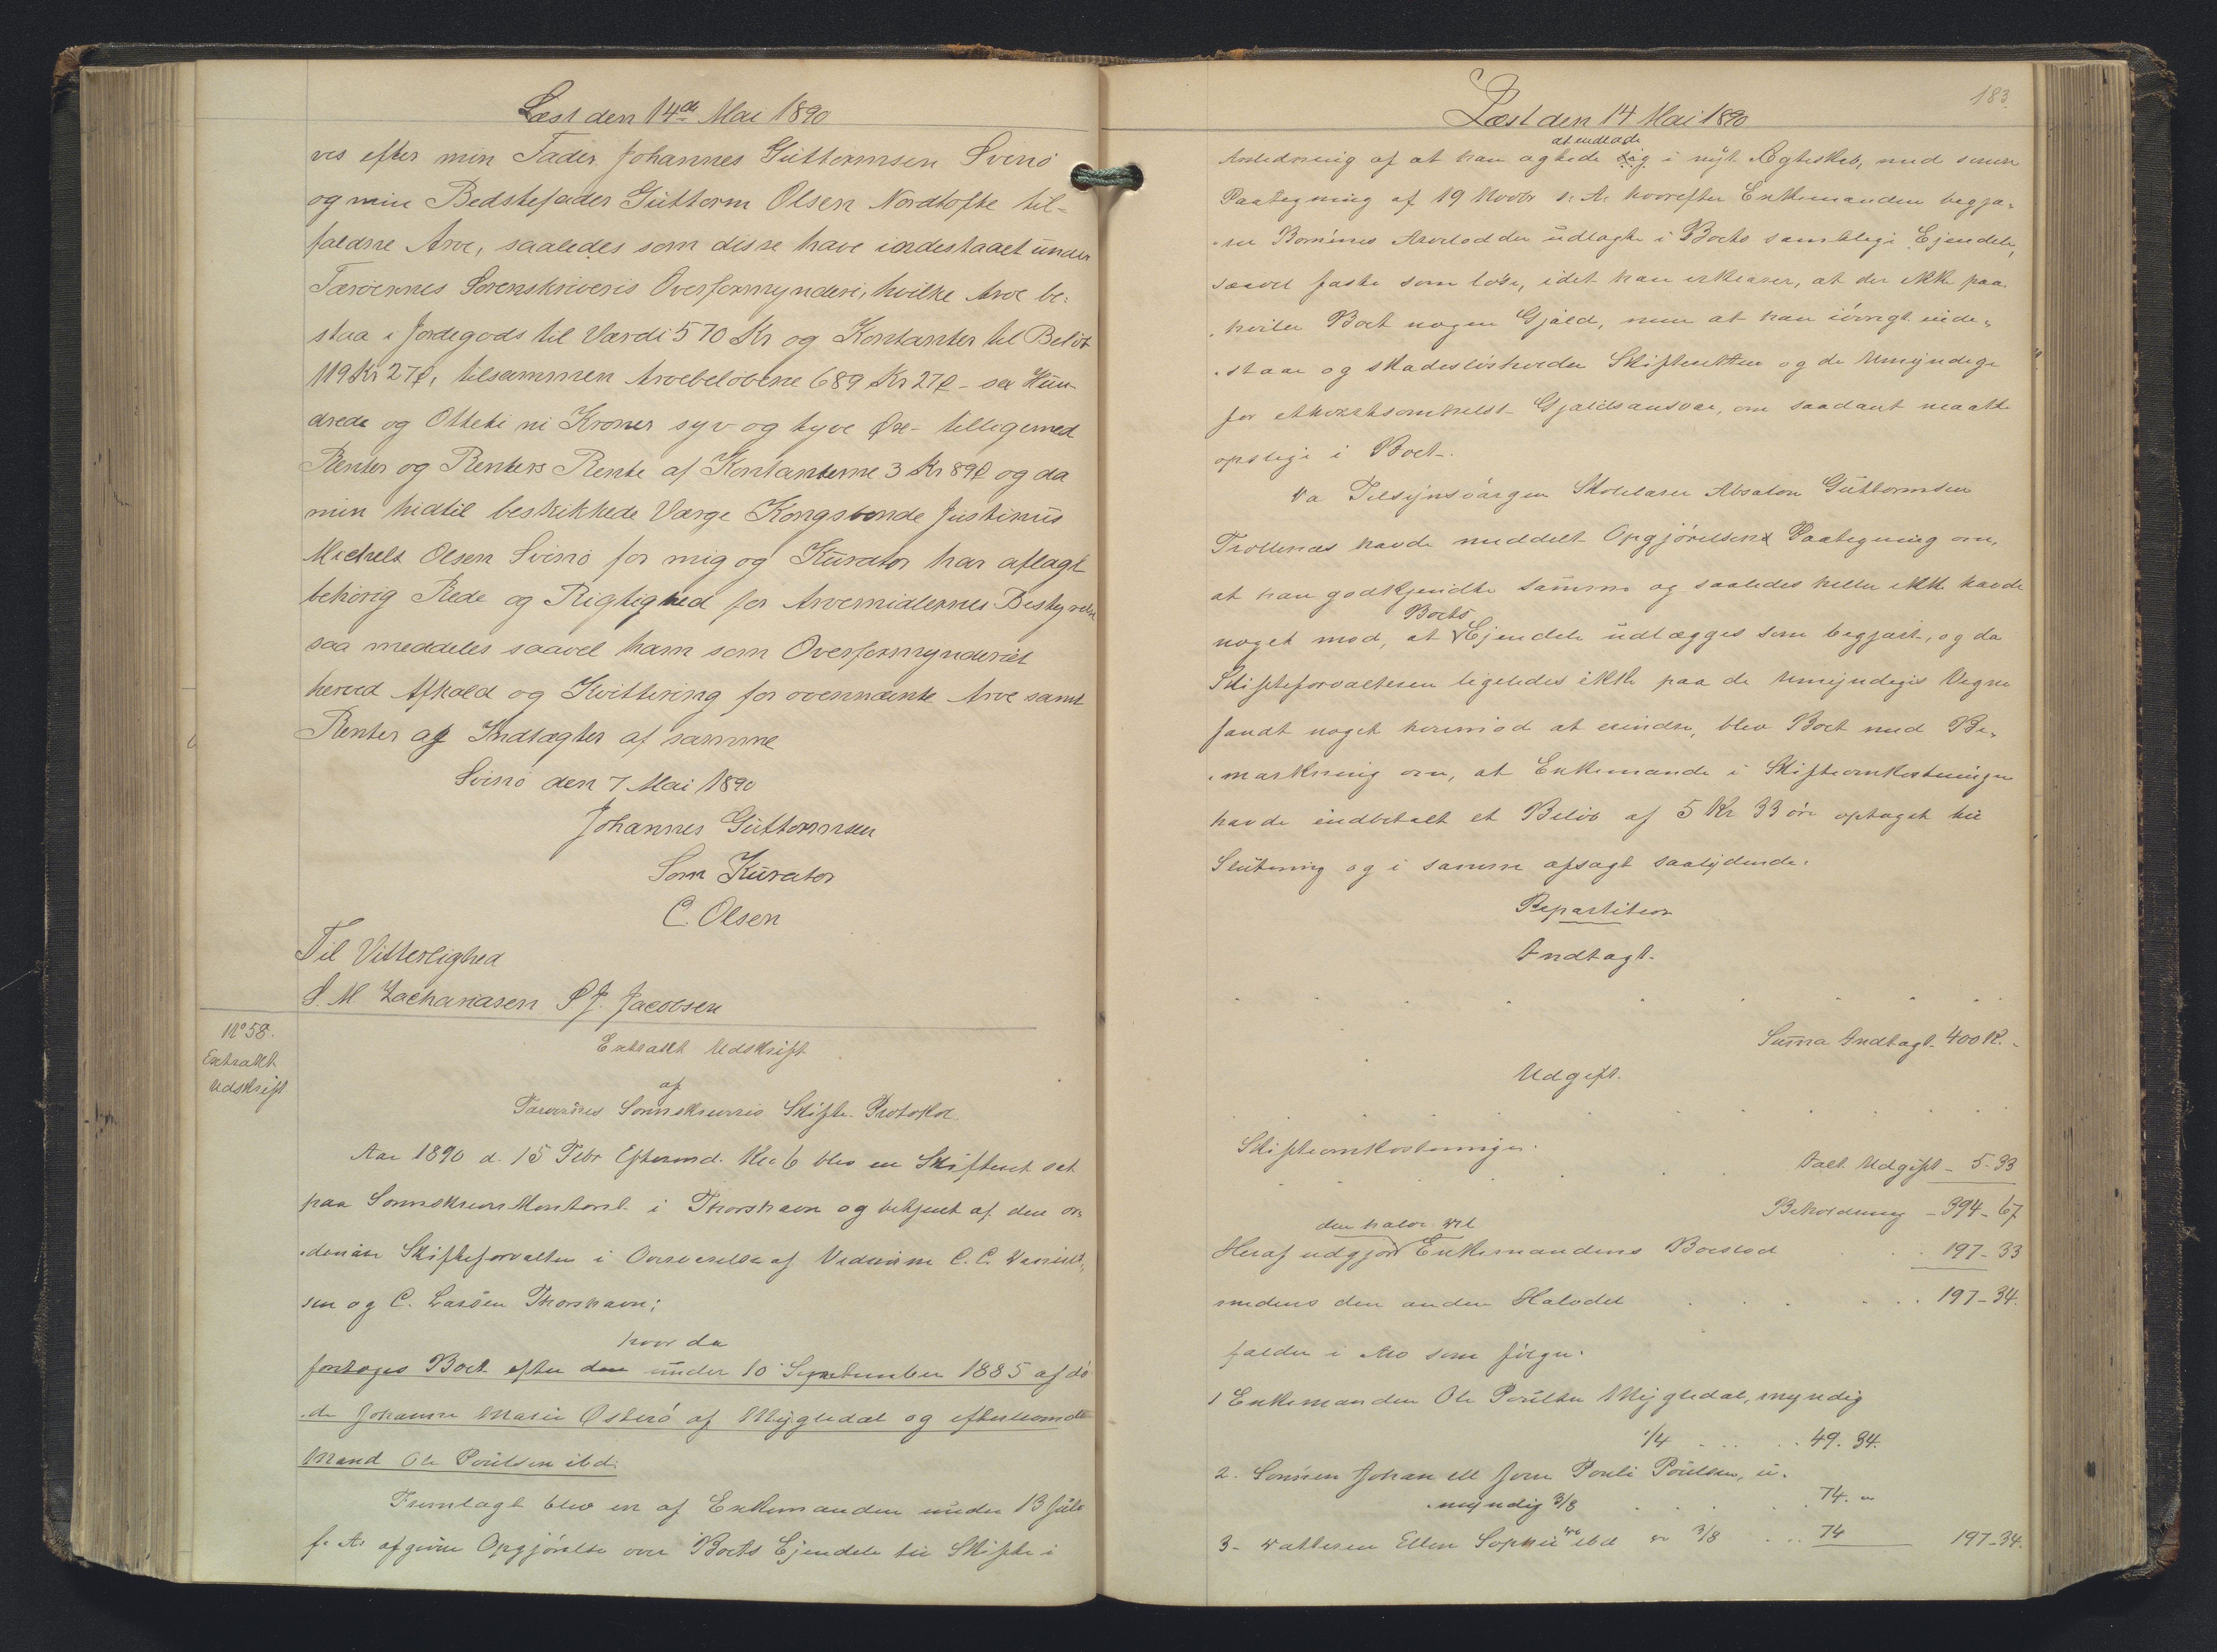 Læst den 14de Mai 1890
ves efter min Fader Johannes Guttormsen Svinø
og min Bedstefader Guttorm Olsen Nordtofte til-
faldne Arve, saaledes som disse have indestaaet under
Færøernes Sorenskriveris Overformynderi, hvilke Arve be-
staa i Jordegods til Værdi 570 Kr og Kontanter til Beløb
119 Kr 27 ø, tilsammen Arvebeløbene 689 Kr 27 ø - sex Hun-
drede og Otteti ni Kroner syv og tyve Øre - tilligemed
Renter og Renters Rente af Kontanterne 3 Kr 89 ø og da
min hidtil beskikkede Værge Kongsbonde Justinus
Michels Olsen Svinø for mig og Kurator har aflagt
behørig Rede og Rigtighed for Arvemidlernes Bestyrelse
saa meddeles saavel ham som Overformynderiet
herved Afkald og Kvittering for ovennævnte Arve samt
Renter og Indtægter af samme
Svinø den 7 Mai 1890
Johannes Guttormsen
Som Kurator
C. Olsen
Til Vitterlighed
S. M. Zachariasen P J. Jacobsen
No 58.
Extrakt
Udskrift
Extrakt Udskrift
af
Færøernes Sorenskriveris Skifte-Protokol.
Aar 1890 d. 15 Febr Eftermd. Kl. 6 blev en Skifteret sat
paa Sorenskriverkontoret i Thorshavn og betjent af den or-
dinære Skifteforvalter i Overværelse af Vidnerne C. C. Danniel-
sen og C. Larsen Thorshavn;
hvor da
foretoges Boet efter den under 10 September 1885 afdø-
de Johanne Marie Østerø af Mygledal og efterkomdte
Mand Ole Poulsen ibd.
Fremlagt blev en af Enkemanden under 13 Juli
f. A. afgiven Opgjørelse over Boets Ejendele til Skifte i
183.
Læst den 14 Mai 1890
at indlade
Anledning af at han agtede sig i nyt Ægteskab, med senere
Paategning af 19 Novbr s. A. hvorefter Enkemanden begjæ-
rer Børnenes Arvelodder udlagte i Boets samtlige Ejendele,
saavel faste som løse, idet han erklærer, at der ikke paa-
hviler Boet nogen Gjæld, men at han iøvrigt inde-
staar og skadesløsholder Skifteretten og de Umyndige
for ethvertsomhelst Gjældsansvar, om saadant maatte
opstige i Boet.
Da Tilsynsværgen Skolelærer Absalon Guttormsen
Trøllenæs havde meddelt Opgjørelsen Paategning om,
at han godkjendte samme og saaledes heller ikke havde
Boets
noget mod, at Ejendele udlægges som begjært, og da
Skifteforvalteren ligeledes ikke paa de Umyndiges Vegne
fandt noget herimod at erindre, blev Boet med Be-
mærkning om, at Enkemanden i Skifteomkostninger
havde indbetalt et Beløb af 5 Kr 33 øre optaget til
Slutning og i samme afsagt saalydende:
Repartition
Indtægt.
Summa Indtægt 400 K. -
Udgift.
Skifteomkostninger.
Talt Udgift - 5. 33
Beholdning - 394 - 67
den halve Del
Heraf udgjør Enkemandens Boeslod . . 197 - 33
medens den anden Halvdel . . . . 197 - 34.
falder i Arv som følger:
1 Enkemanden Ole Poulsen Mygledal, myndig
1/4 . . . . 49. 34.
2. Sønnen Johan Poulsen, u-
myndig 3/8 . . . . 74. "
3. Datteren Ellen Sophie ibd " 3/8 . . . 74 197-34.